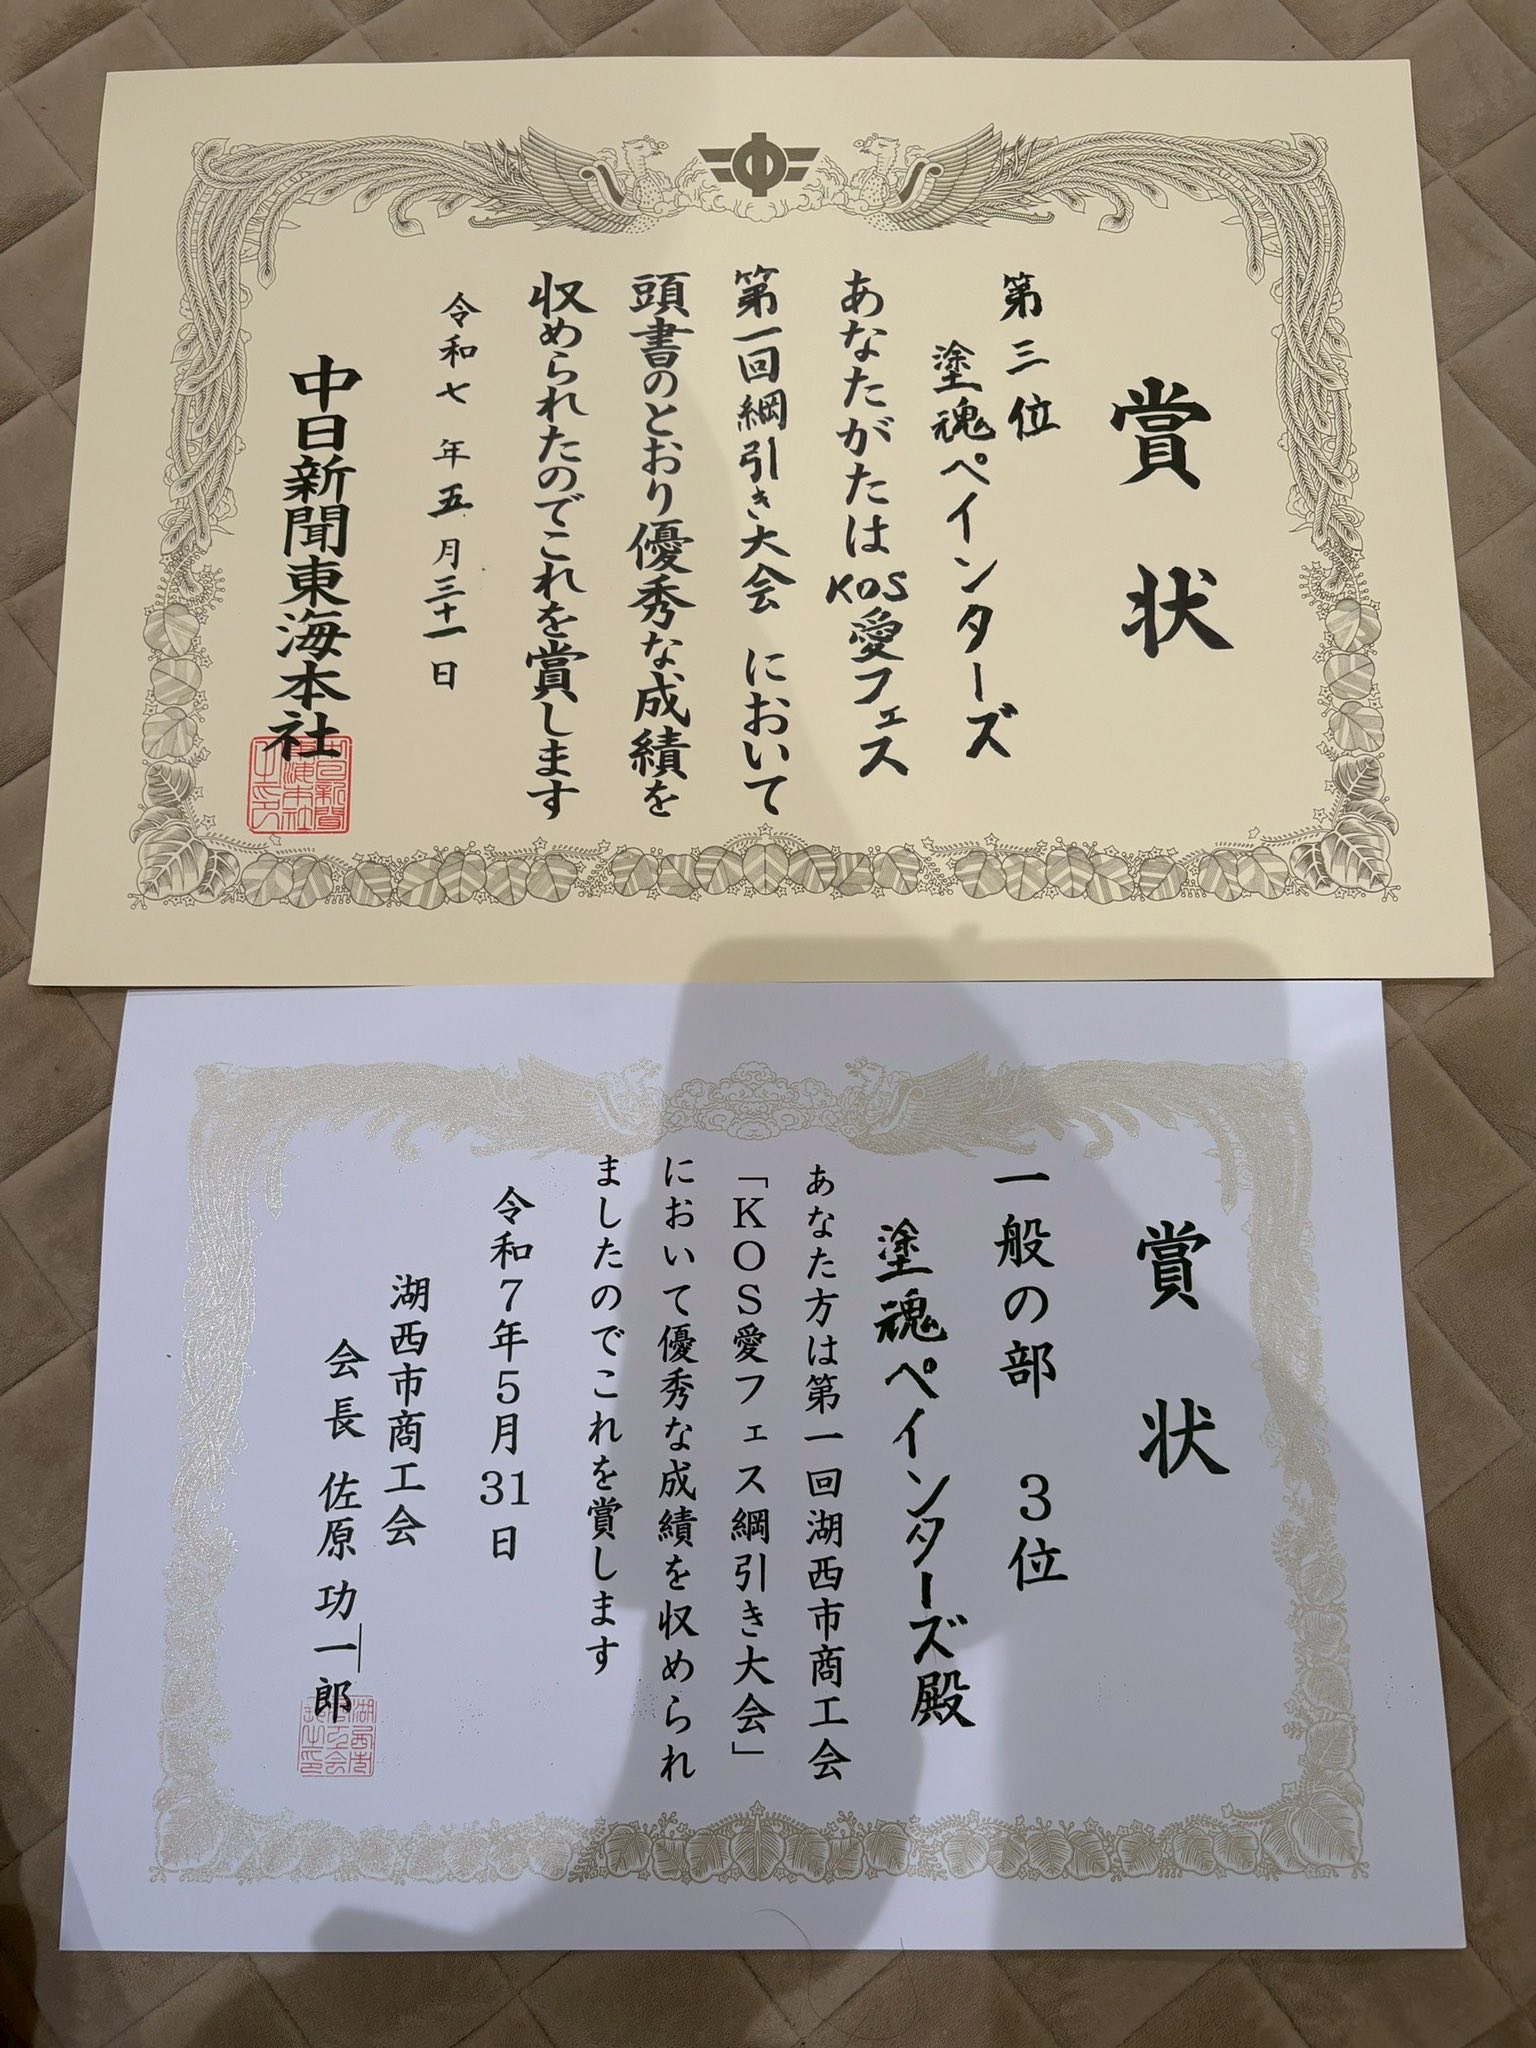 賞状
第三位
塗魂ペインターズ
あなたがたはKOS愛フェス
第一回綱引き大会 において
頭書のとおり優秀な成績を
収められたのでこれを賞します
令和七年五月三十一日
中日新聞東海本社
賞状
一般の部 3位
塗魂ペインターズ殿
あなた方は第一回湖西市商工会
「KOS愛フェス綱引き大会」
において優秀な成績を収められ
ましたのでこれを賞します
令和7年5月31日
湖西市商工会
会長 佐原 功一郎